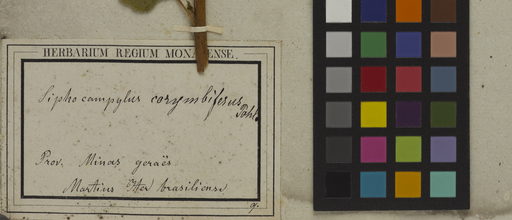 HERBARIUM REGIUM MONACENSE.
Siphocampylus corymbiferus
Pohl.
Prov. Minas geraës
Martius Iter brasiliense